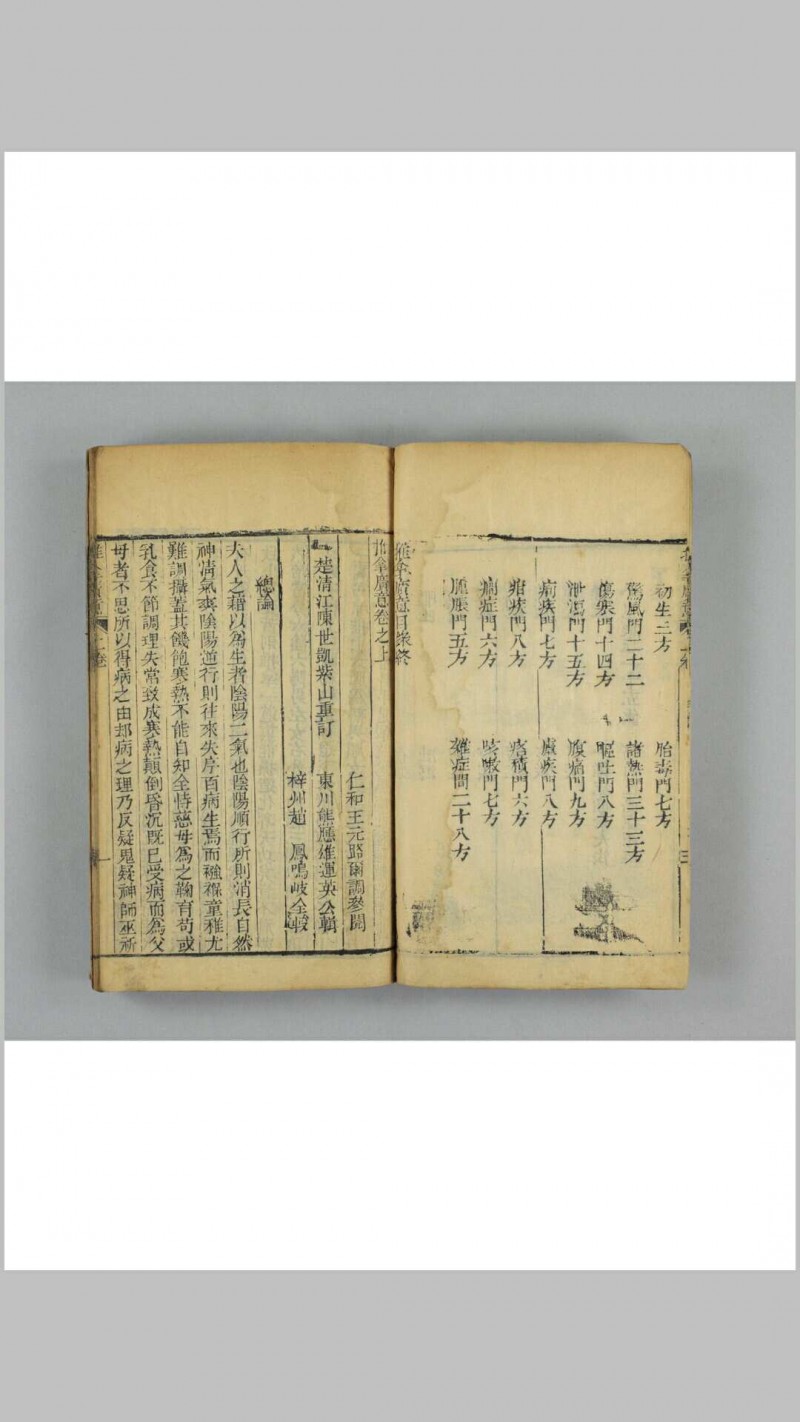 初生三方
胎毒門七方
驚風門二十二
諸熱門三十三方
傷寒門十四方
嘔吐門八方
泄瀉門十五方
腹痛門九方
痢疾門七方
瘧疾門八方
疳疾門八方
痞積門六方
癇症門六方
咳嗽門七方
腫脹門五方
雜症問二十八方
推拿廣意目錄終
推拿廣意卷之上
仁和王元璐爾調參閱
楚清江陳世凱紫山重訂
東川熊應雄運英公輯
梓州趙 鳳鳴岐仝
總論
夫人之藉以為生者陰陽二氣也陰陽順行所則消長自然
神清氣爽陰陽逆行則往來失序百病生焉而襁褓童稚尤
難調攝蓋其饑飽寒熱不能自知全恃慈母為之鞠育苟或
乳食不節調理失常致成寒熱顛倒昏沉既已受病而為父
母者不思所以得病之由却病之理乃反疑鬼疑神師巫祈